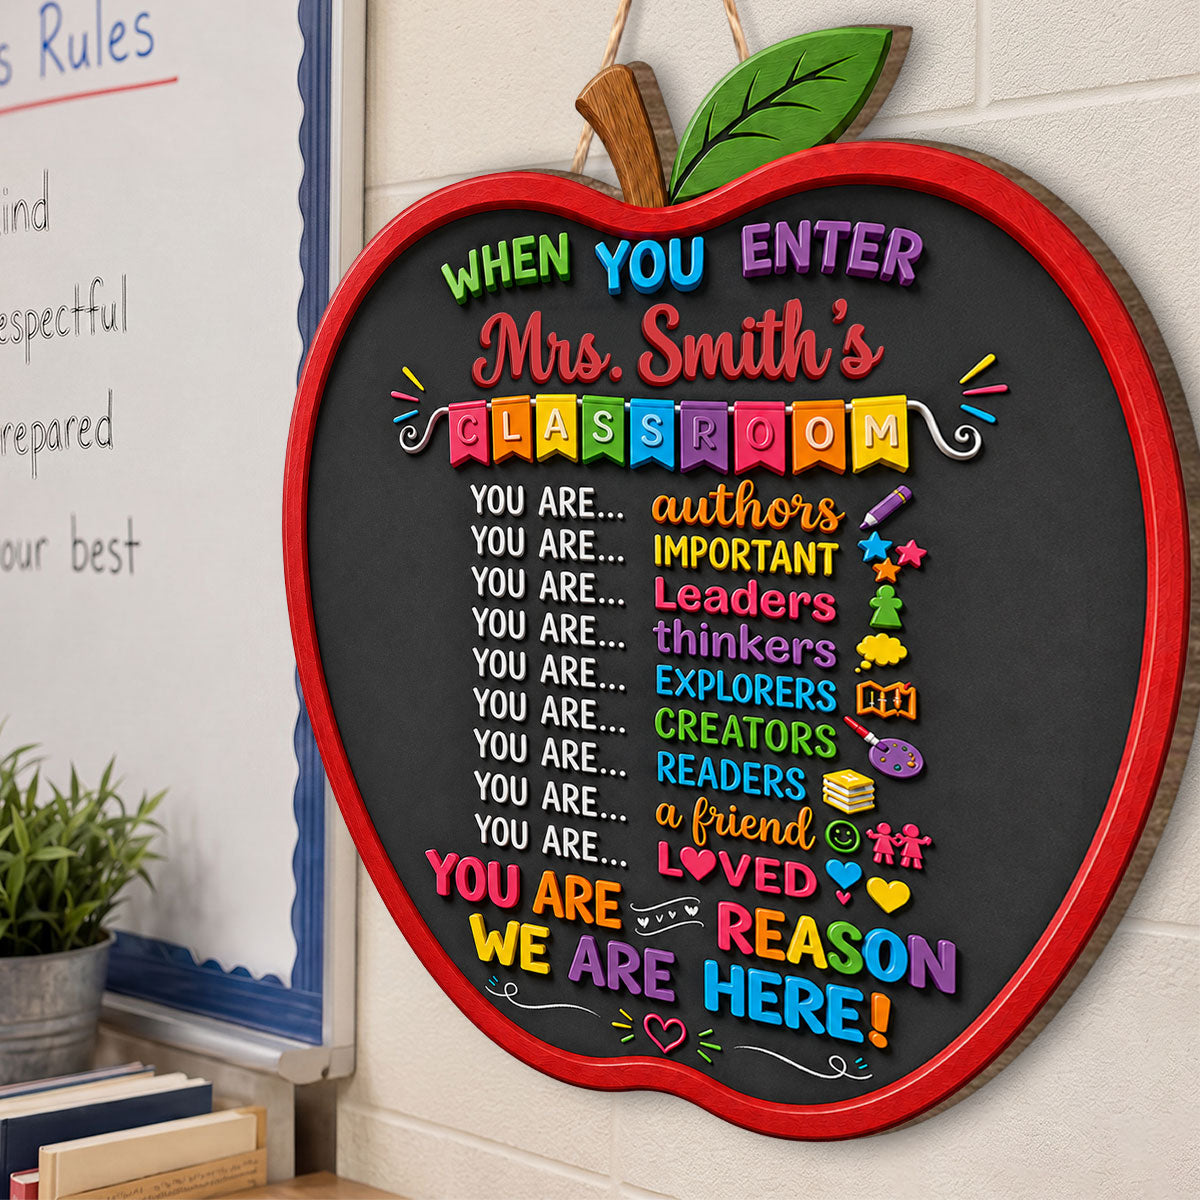 s Rules
espectful
repared
our best
WHEN YOU ENTER
Mrs. Smith's
CLASSROOM
YOU ARE... authors
YOU ARE... IMPORTANT
YOU ARE... Leaders
YOU ARE... thinkers
YOU ARE... EXPLORERS
YOU ARE... CREATORS
YOU ARE... READERS
YOU ARE... a friend
YOU ARE... LOVED
YOU ARE REASON
WE ARE HERE!